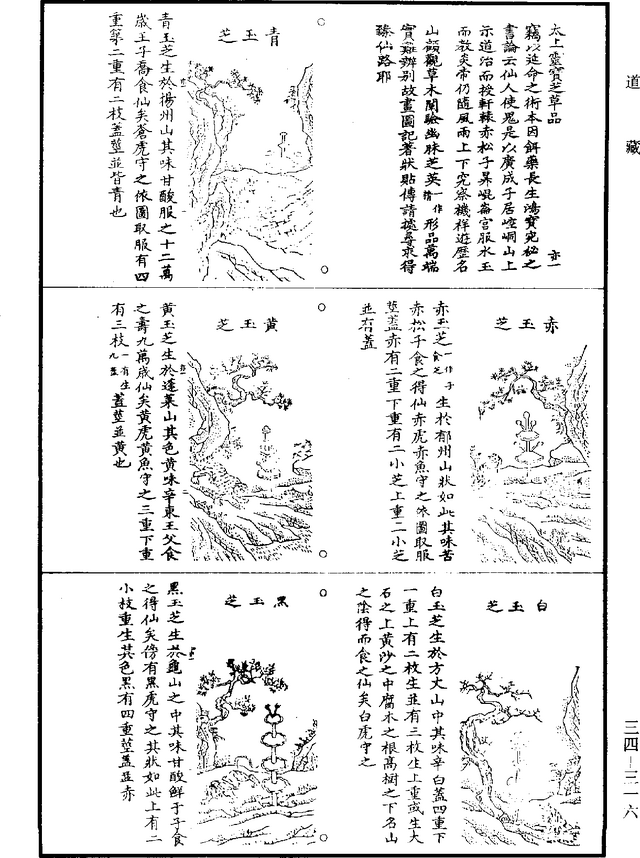 道藏
太上靈寶芝草品
亦一
竊以延命之術本因餌藥長生鴻寶宛秘之
書論云仙人使鬼是以廣成子居崆峒山上
示道治而授軒轅赤松子昇崐崙宮服水玉
而教炎帝仍隨風雨上下究察機祥遊歷名
山顧觀草木闌驗幽脉芝英一作精形品萬端
實難辨別故畫圖記著狀貼傳請據尋求得
臻仙路耶
青玉芝
青玉芝生於揚州山其味甘酸服之十二萬
歲王子喬食仙矣蒼虎守之依圖取服有四
重第二重有二枝蓋莖並皆青也
赤玉芝
赤玉芝一作子食芝生於郁州山狀如此其味苦
赤松子食之得仙赤虎赤魚守之依圖取服
莖蓋赤有二重下重有二小芝上重二小芝
並有蓋
黃玉芝
黃玉芝生於蓬萊山其色黃味辛東王父食
之壽九萬歲仙矣黃虎黃魚守之三重下重
有三枝一有生九蓋蓋莖並黃也
白玉芝
白玉芝生於方丈山中其味辛白蓋四重下
一重上有二枝生並有三枝生上重或生大
石之上黃沙之中腐木之根高樹之下名山
之陰得而食之仙矣白虎守之
黑玉芝
黑玉芝生於龜山之中其味甘酸鮮于子食
之得仙矣傍有黑虎守之其狀如此上有二
小枝重生其色黑有四重莖蓋並赤
三四—三一六